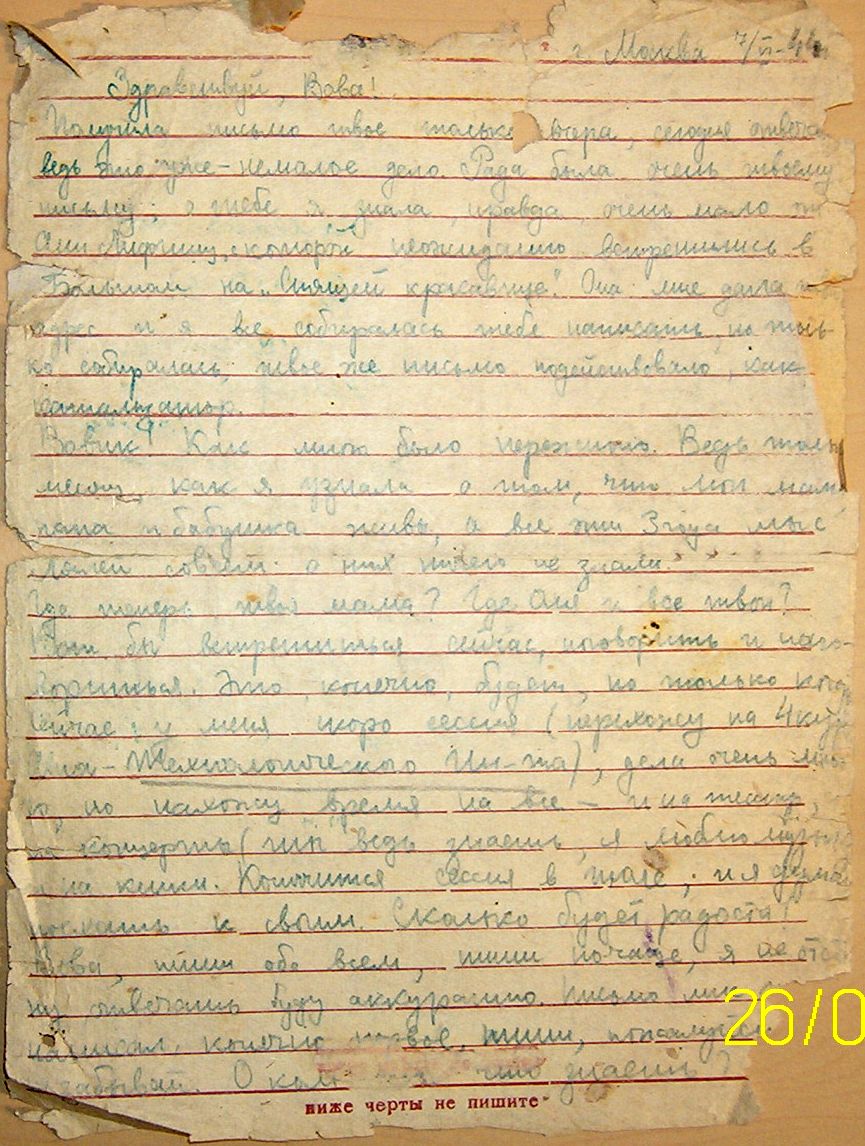 г. Москва 7/VI-44
Здравствуй, Вова!
Получила письмо твое только вчера, сегодня отвеча
ведь это уже - немалое дело. Рада была очень твоему
письму; о тебе я знала, правда, очень мало от
Ани, с которой неожиданно встретились в
Большом на „Спящей красавице". Она мне дала
адрес и я все собиралась тебе написать, но толь
ко собиралась, твое же письмо подействовало, как
катализатор.
Вовик! Как много было пережито. Ведь толь
месяц, как я узнала о том, что мои мам
папа и бабушка живы, а все эти 3 года мы с
совсем о них ничего не знали.
Где теперь твоя мама? Где Оля и все твои?
Вот бы встретиться сейчас, поговорить и наго-
вориться. Это, конечно, будет, но только
Сейчас у меня скоро сессия (перехожу на 4 кур
Технологического Ин-та), дела очень мно
го, но нахожу время на все - и на театр,
на концерты (ты ведь знаешь, я люблю музы
и на книги. Кончится сессия в июле, и я дума
поехать к своим. Сколько будет радости!
Вова, пиши обо всем, пиши почаще, я не оста
ну отвечать буду аккуратно. Письмо
написал, конечно, первое, пиши, пожалуйст
забывай. О ком что знаешь?
ниже черты не пишите
26/0